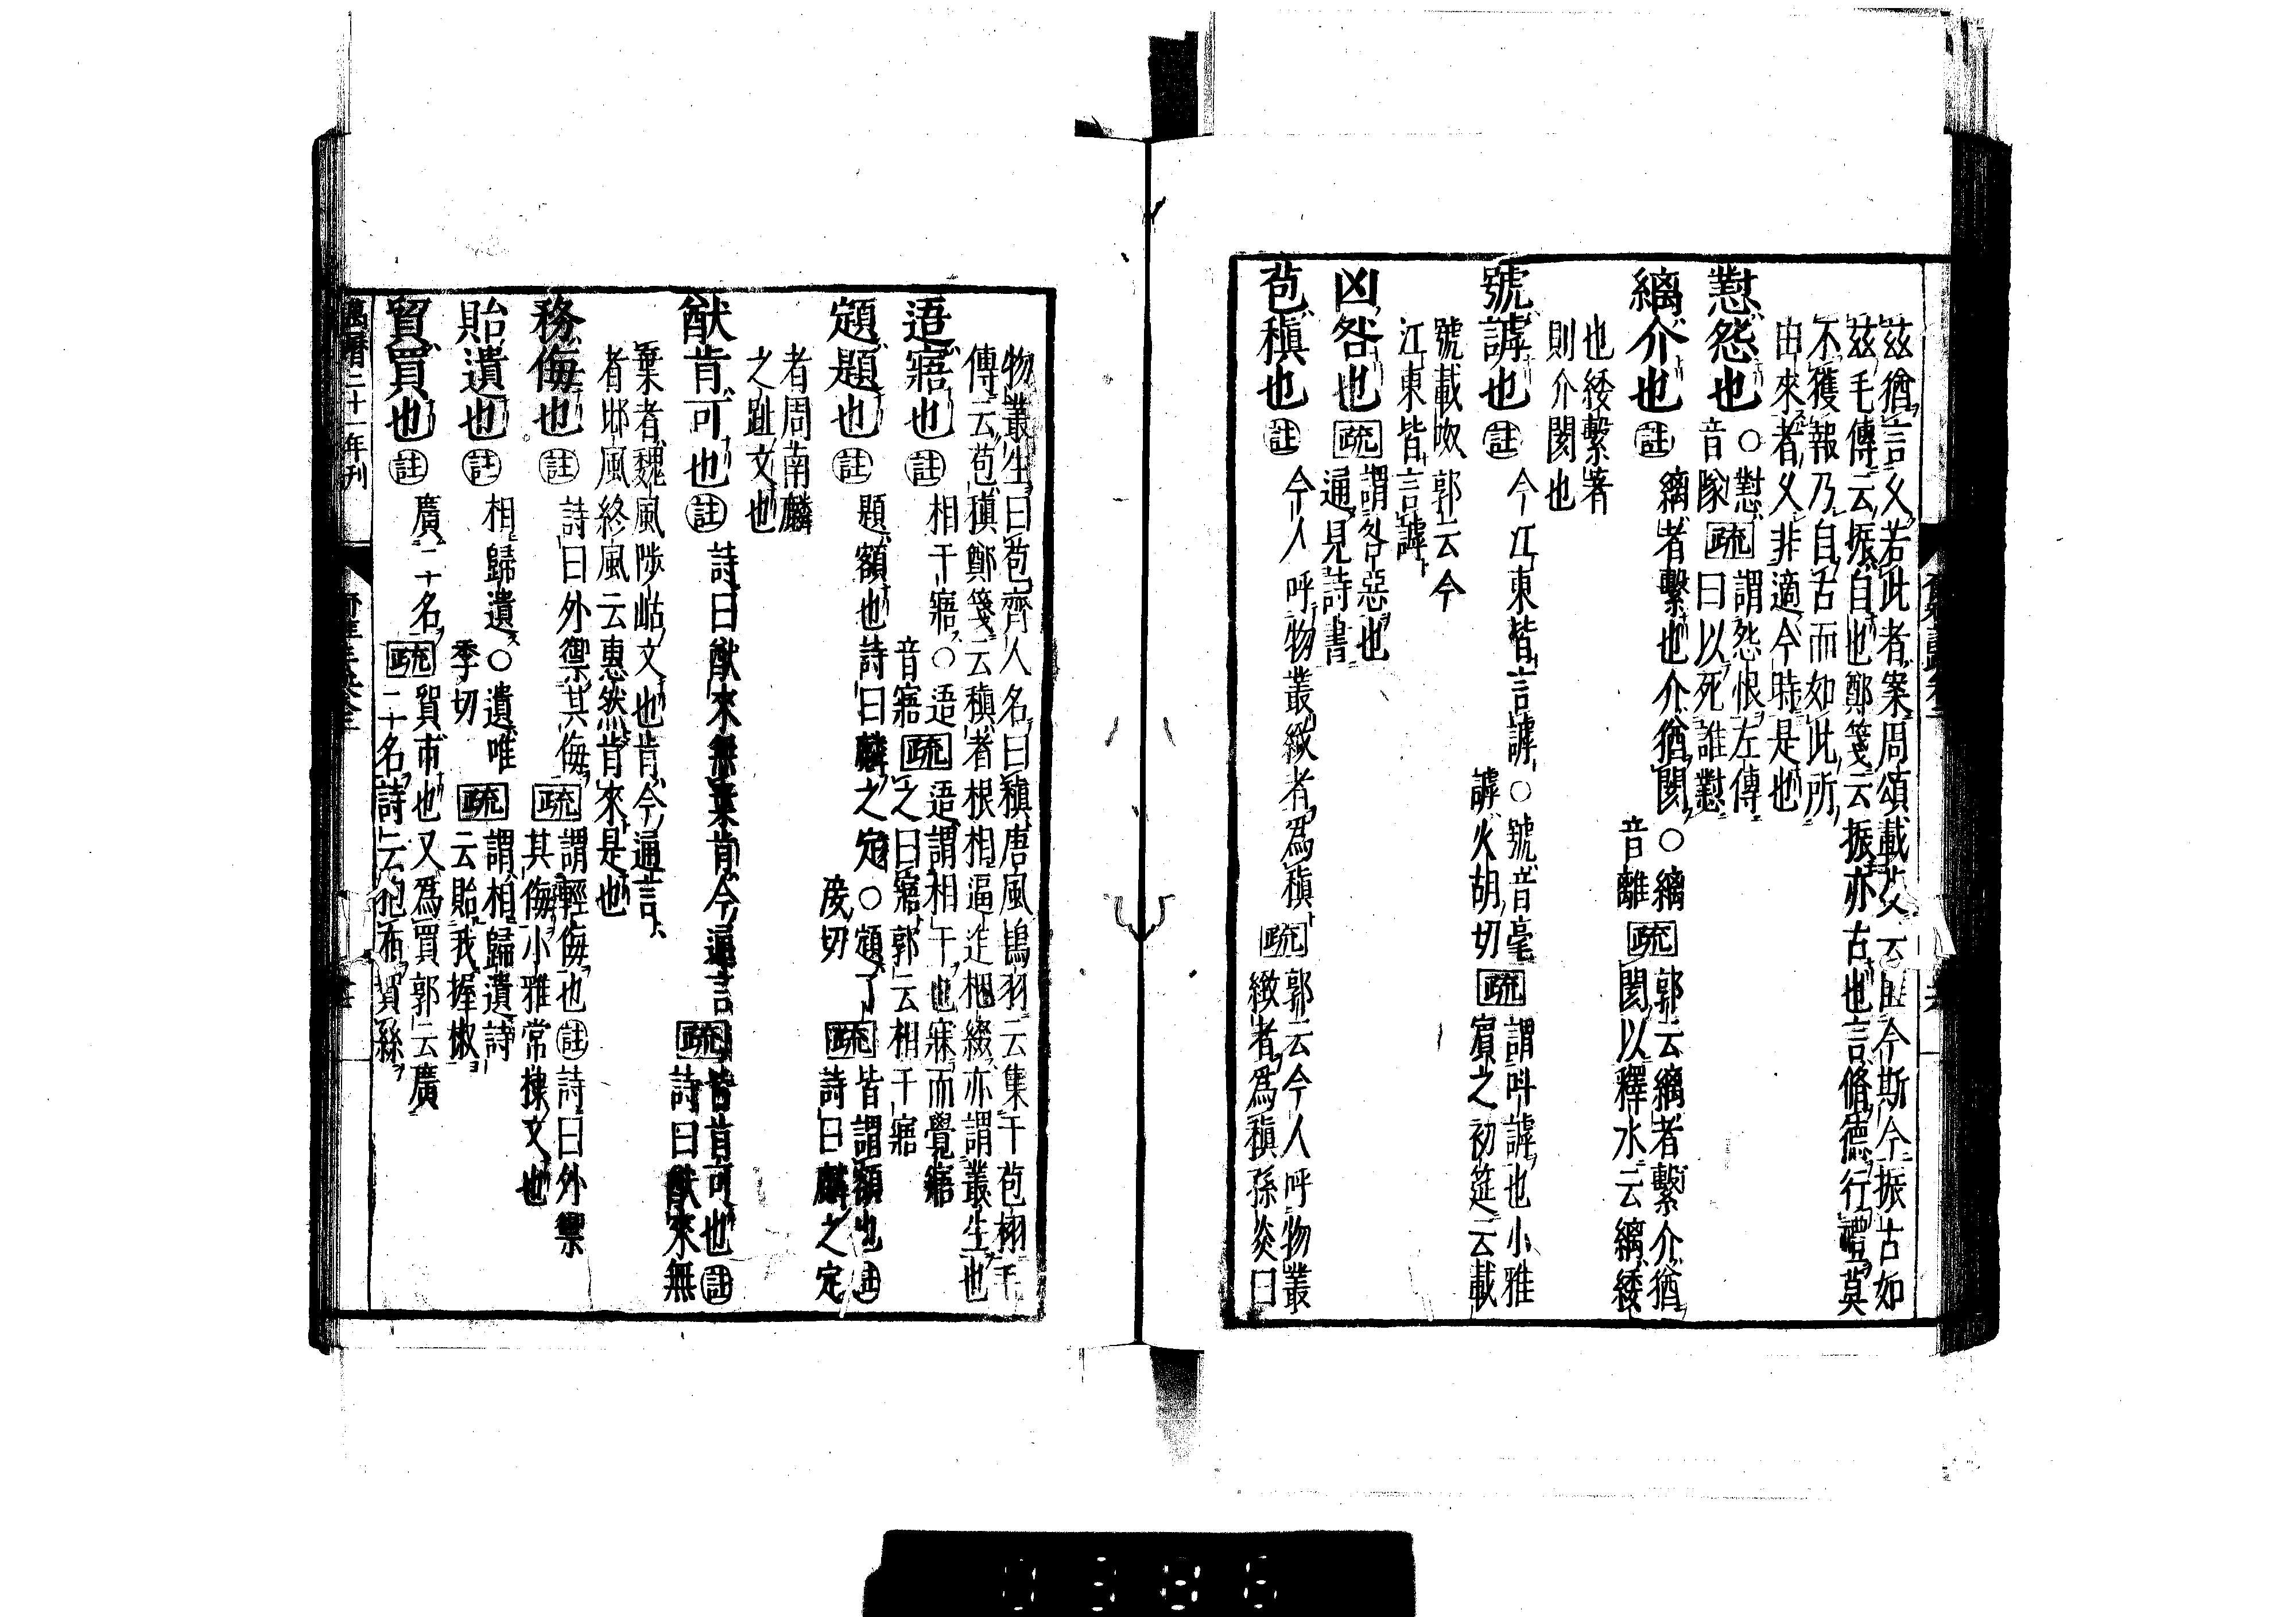 茲猶言乂若此者案周頌載芟云匪今斯今振古如
茲毛傳云振自也鄭箋云振亦古也言脩德行禮莫
不獲報乃自古而如此所
由來者乂非適今時是也
懟怨也
○懟
音隊
疏
謂怨恨左傳
曰以死誰懟
縭介也
註
縭者繫也介猶閡
○縭
音離
疏
郭云縭者繫介猶
閡以釋水云縭緌
也緌繫著
則介閡也
號謼也
註
今江東皆言謼
○號音毫
謼火胡切
疏
謂叫謼也小雅
賓之初筵云載
號載呶郭云今
江東皆言謼
凶咎也
疏
謂咎惡也
通見詩書
苞稹也
註
今人呼物叢緻者為稹
疏
郭云今人呼物叢
緻者為稹孫炎曰
物叢生曰苞齊人名曰稹唐風鴇羽云集于苞栩毛
傳云苞稹鄭箋云稹者根相逼迮梱緻亦謂叢生也
逜寤也
註
相干寤
○逜
音寤
疏
逜謂相干也寐而覺寤
之曰寤郭云相干寤
顁題也
註
題額也詩曰麟之定
○顁丁
佞切
疏
皆謂額也註
詩曰麟之定
者周南麟
之趾文也
猷肯可也
註
詩曰猷來無棄肯今通言
疏
皆肯可也註
詩曰猷來無
棄者魏風陟岵文也肯今通言
者邶風終風云惠然肯來是也
務侮也
註
詩曰外禦其侮
疏
謂輕侮也註詩曰外禦
其侮小雅常棣文也
貽遺也
註
相歸遺
○遺唯
季切
疏
謂相歸遺詩
云貽我握椒
貿買也
註
廣二十名
疏
貿市也又為買郭云廣
二十名詩云抱布貿絲
萬曆二十一年刊